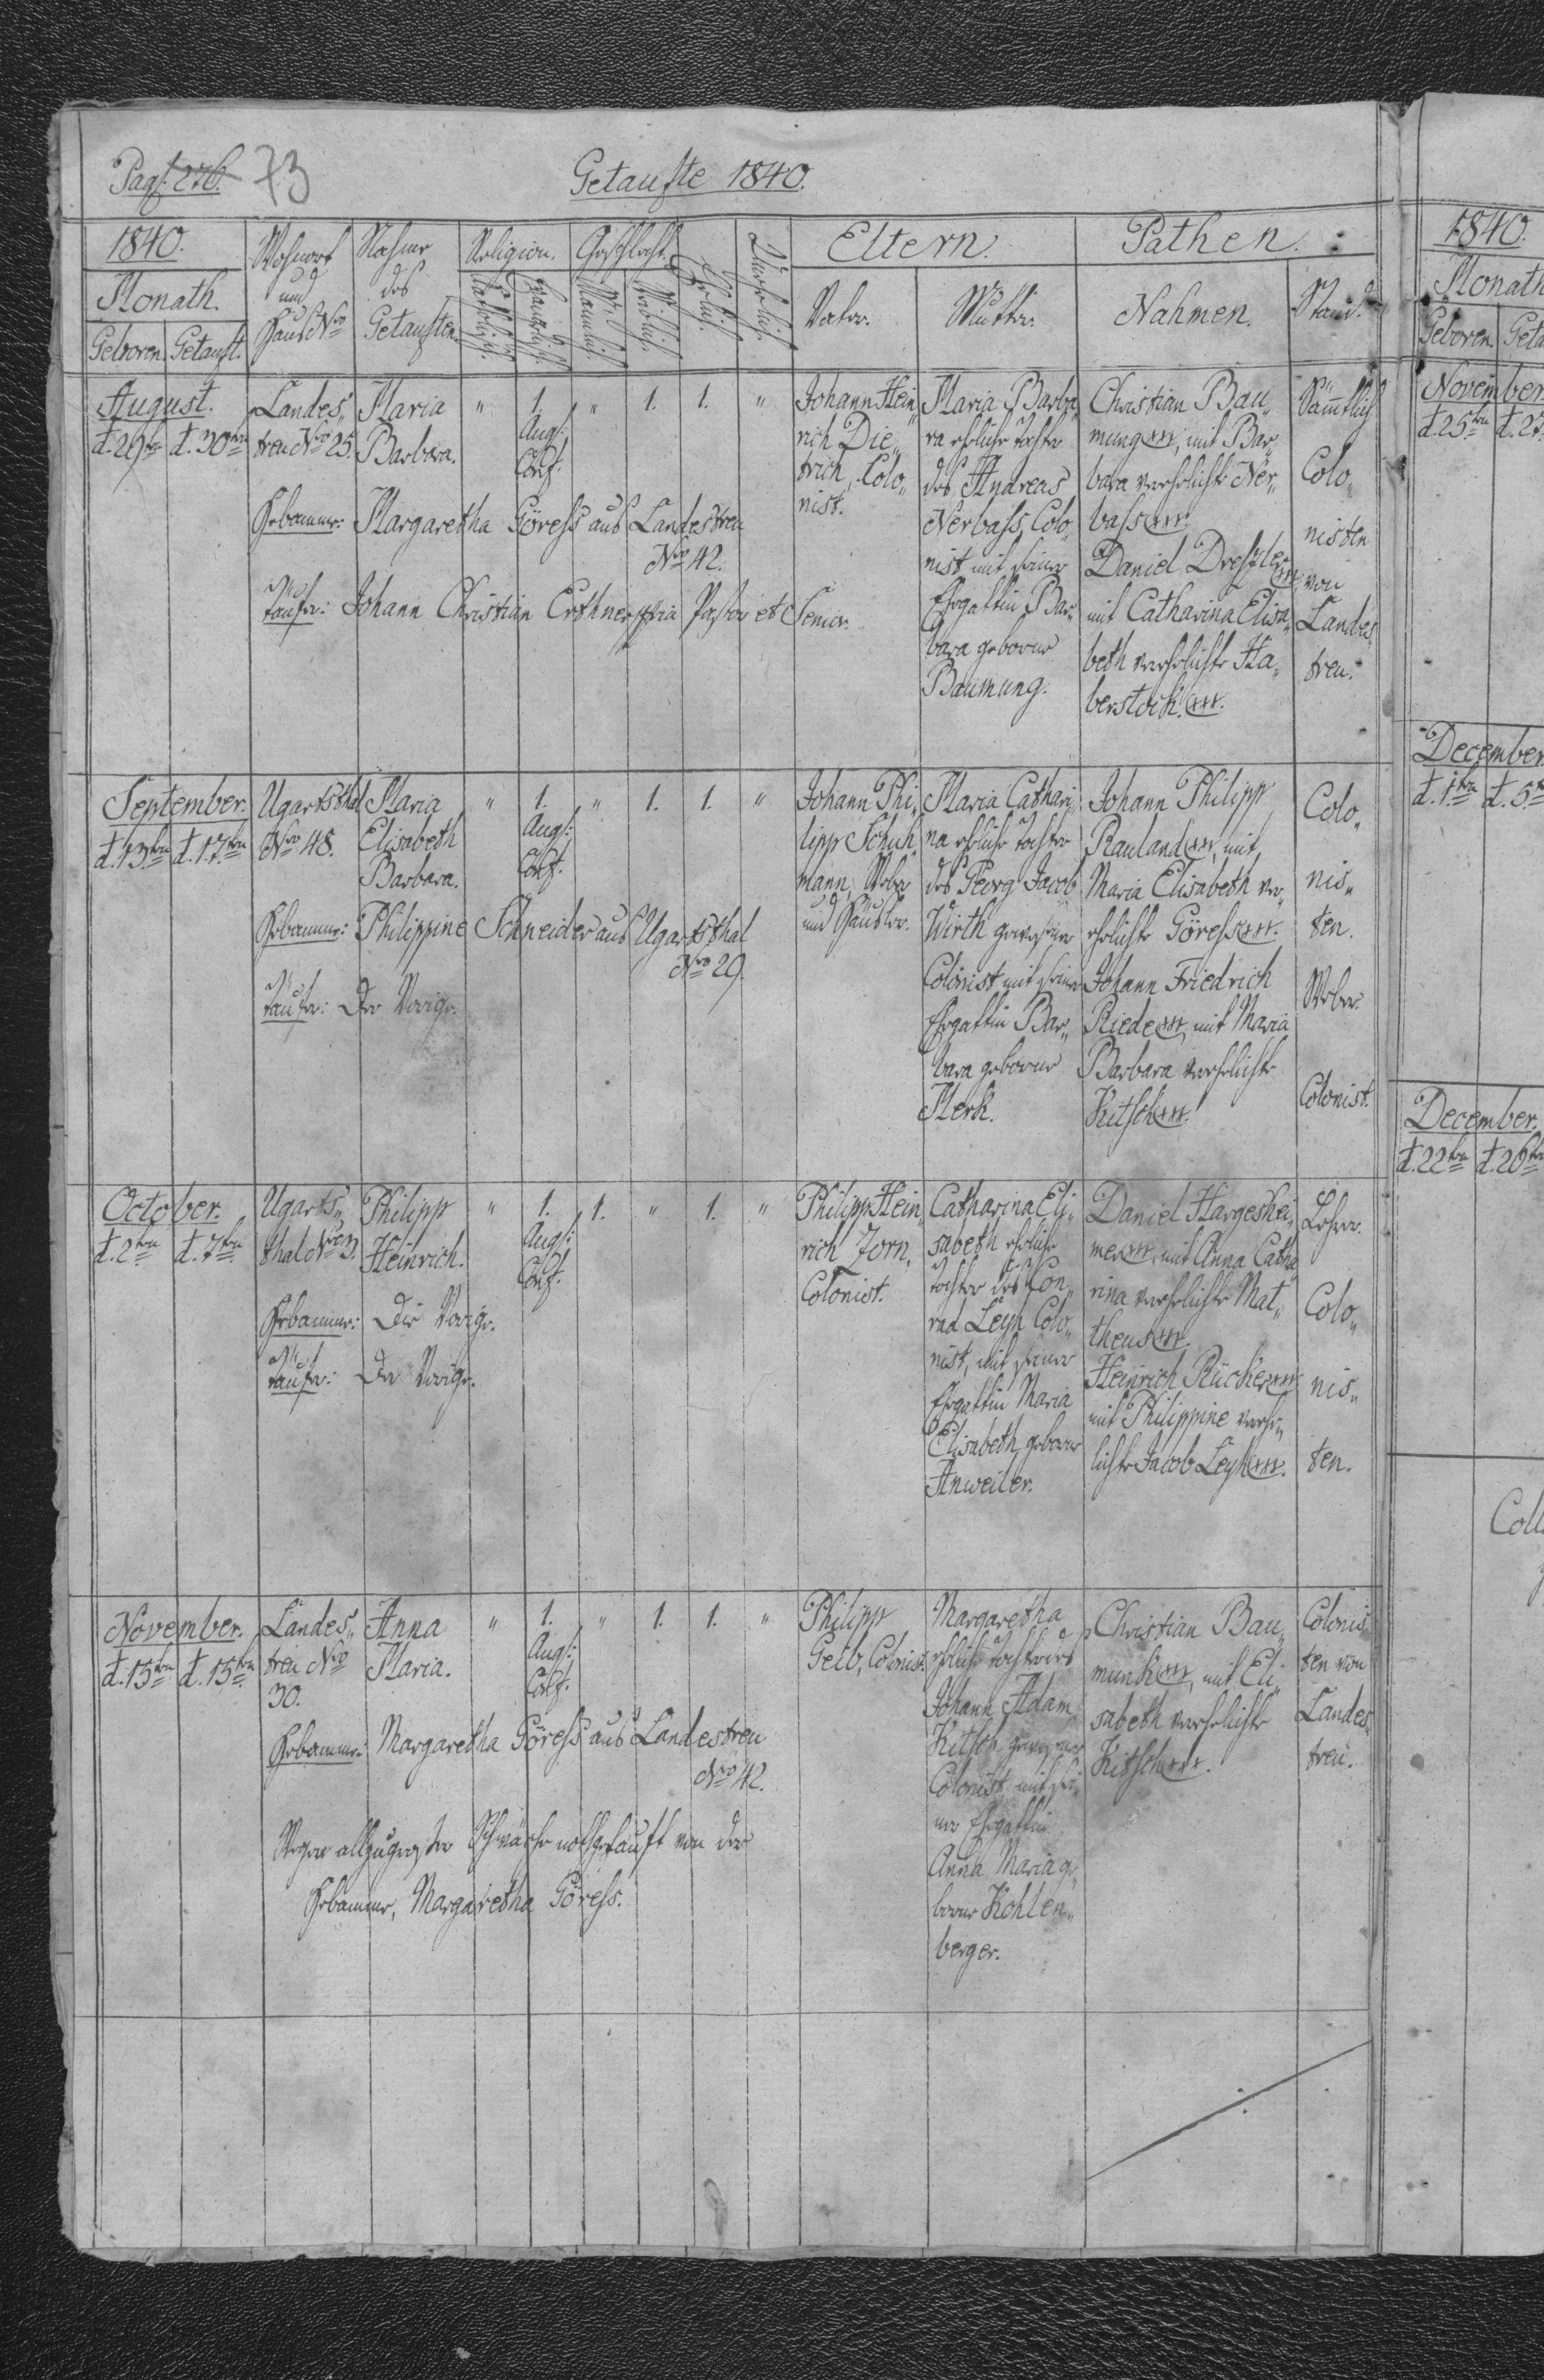 Pag. 276. 73
Getaufte 1840.
1840.
Monath.
Geboren. Getauft.
Wohnort
und
Haus Nro
Nahme
des
Getauften.
Religion.
Katholisch.
Evangelisch.
Geschlecht.
Männlich.
Weiblich.
Ehelich.
Unehelich.
Eltern.
Vater.
Mutter.
Pathen.
Nahmen.
Stand.
August.
d. 29ten d. 30ten
Landes„
treu Nro 25.
Maria
Barbara.
" 1. " 1. 1. "
Augs:
Conf.
Johann Hein„
rich Die„
trich, Colo„
nist.
Maria Barba„
ra eheliche Tochter
des Andreas
Nerbass, Colo„
nist mit seiner
Ehegattin Bar„
bara geborne
Baumung.
Christian Bau„
mung xxx, mit Bar„
bara verehelichte Ner„
bass xxx.
Daniel Dressler xxx,
mit Catharina Elisa„
beth verehelichte Ha„
berstock. xxx.
Sämmtlich
Colo„
nisten
von
Landes„
treu.
Hebamme: Margaretha Göress aus Landestreu
Nro 42.
Taufer: Johann Christian Erthner mpria Pastor et Senior.
September.
d. 13ten d. 17ten
Ugartsthal
Nro 48.
Maria
Elisabeth
Barbara.
" 1. " 1. 1. "
Augs:
Conf.
Johann Phi„
lipp Schuh„
mann, Weber
und Häusler.
Maria Cathari„
na eheliche Tochter
des Georg Jacob
Wirth gewesener
Colonist mit seiner
Ehegattin Bar„
bara geborne
Merk.
Johann Philipp
Rauland xxx, mit
Maria Elisabeth ver„
ehelichte Göress xxx.
Johann Friedrich
Riede xxx, mit Maria
Barbara verehelichte
Kitsch xxx.
Colo„
nis„
ten.
Weber.
Colonist.
Hebamme: Philippine Schneider aus Ugartsthal
Nro 29.
Taufer: Der Vorige.
October.
d. 2ten d. 7ten
Ugarts„
thal Nro 3.
Philipp
Heinrich.
" 1. 1. " 1. "
Augs:
Conf.
Philipp Hein„
rich Zorn,
Colonist.
Catharina Eli„
sabeth eheliche
Tochter des Con„
rad Leyh Colo„
nist, mit seiner
Ehegattin Maria
Elisabeth, geborne
Anweiler.
Daniel Hargeshei„
mer xxx, mit Anna Catha„
rina verehelichte Mat„
theus xxx
Heinrich Rücker xxx
mit Philippine verehe„
lichte Jacob Leyh xxx.
Lehrer.
Colo„
nis„
ten.
Hebamme: Die Vorige.
Taufer: Der Vorige.
November.
d. 15ten d. 15ten
Landes„
treu Nro
30.
Anna
Maria.
" 1. " 1. 1. "
Augs:
Conf.
Philipp
Geib, Colonist.
Margaretha
eheliche Tochter des
Johann Adam
Kitsch gewesener
Colonist mit sei„
ner Ehegattin
Anna Maria ge„
borne Kohlen„
berger.
Christian Bau„
munk xxx, mit Eli„
sabeth verehelichte
Kitsch xxx.
Colonis„
ten von
Landes„
treu.
Hebamme: Margaretha Göress aus Landestreu
Nro 42.
Wegen allzugroßer Schwäche nothgetauft von der
Hebamme, Margaretha Göress.
1840.
Monath
Geboren Geta
November
d. 25ten d. 27
December
d. 1ten d. 5te
December.
d. 22ten d. 26ten
Coll